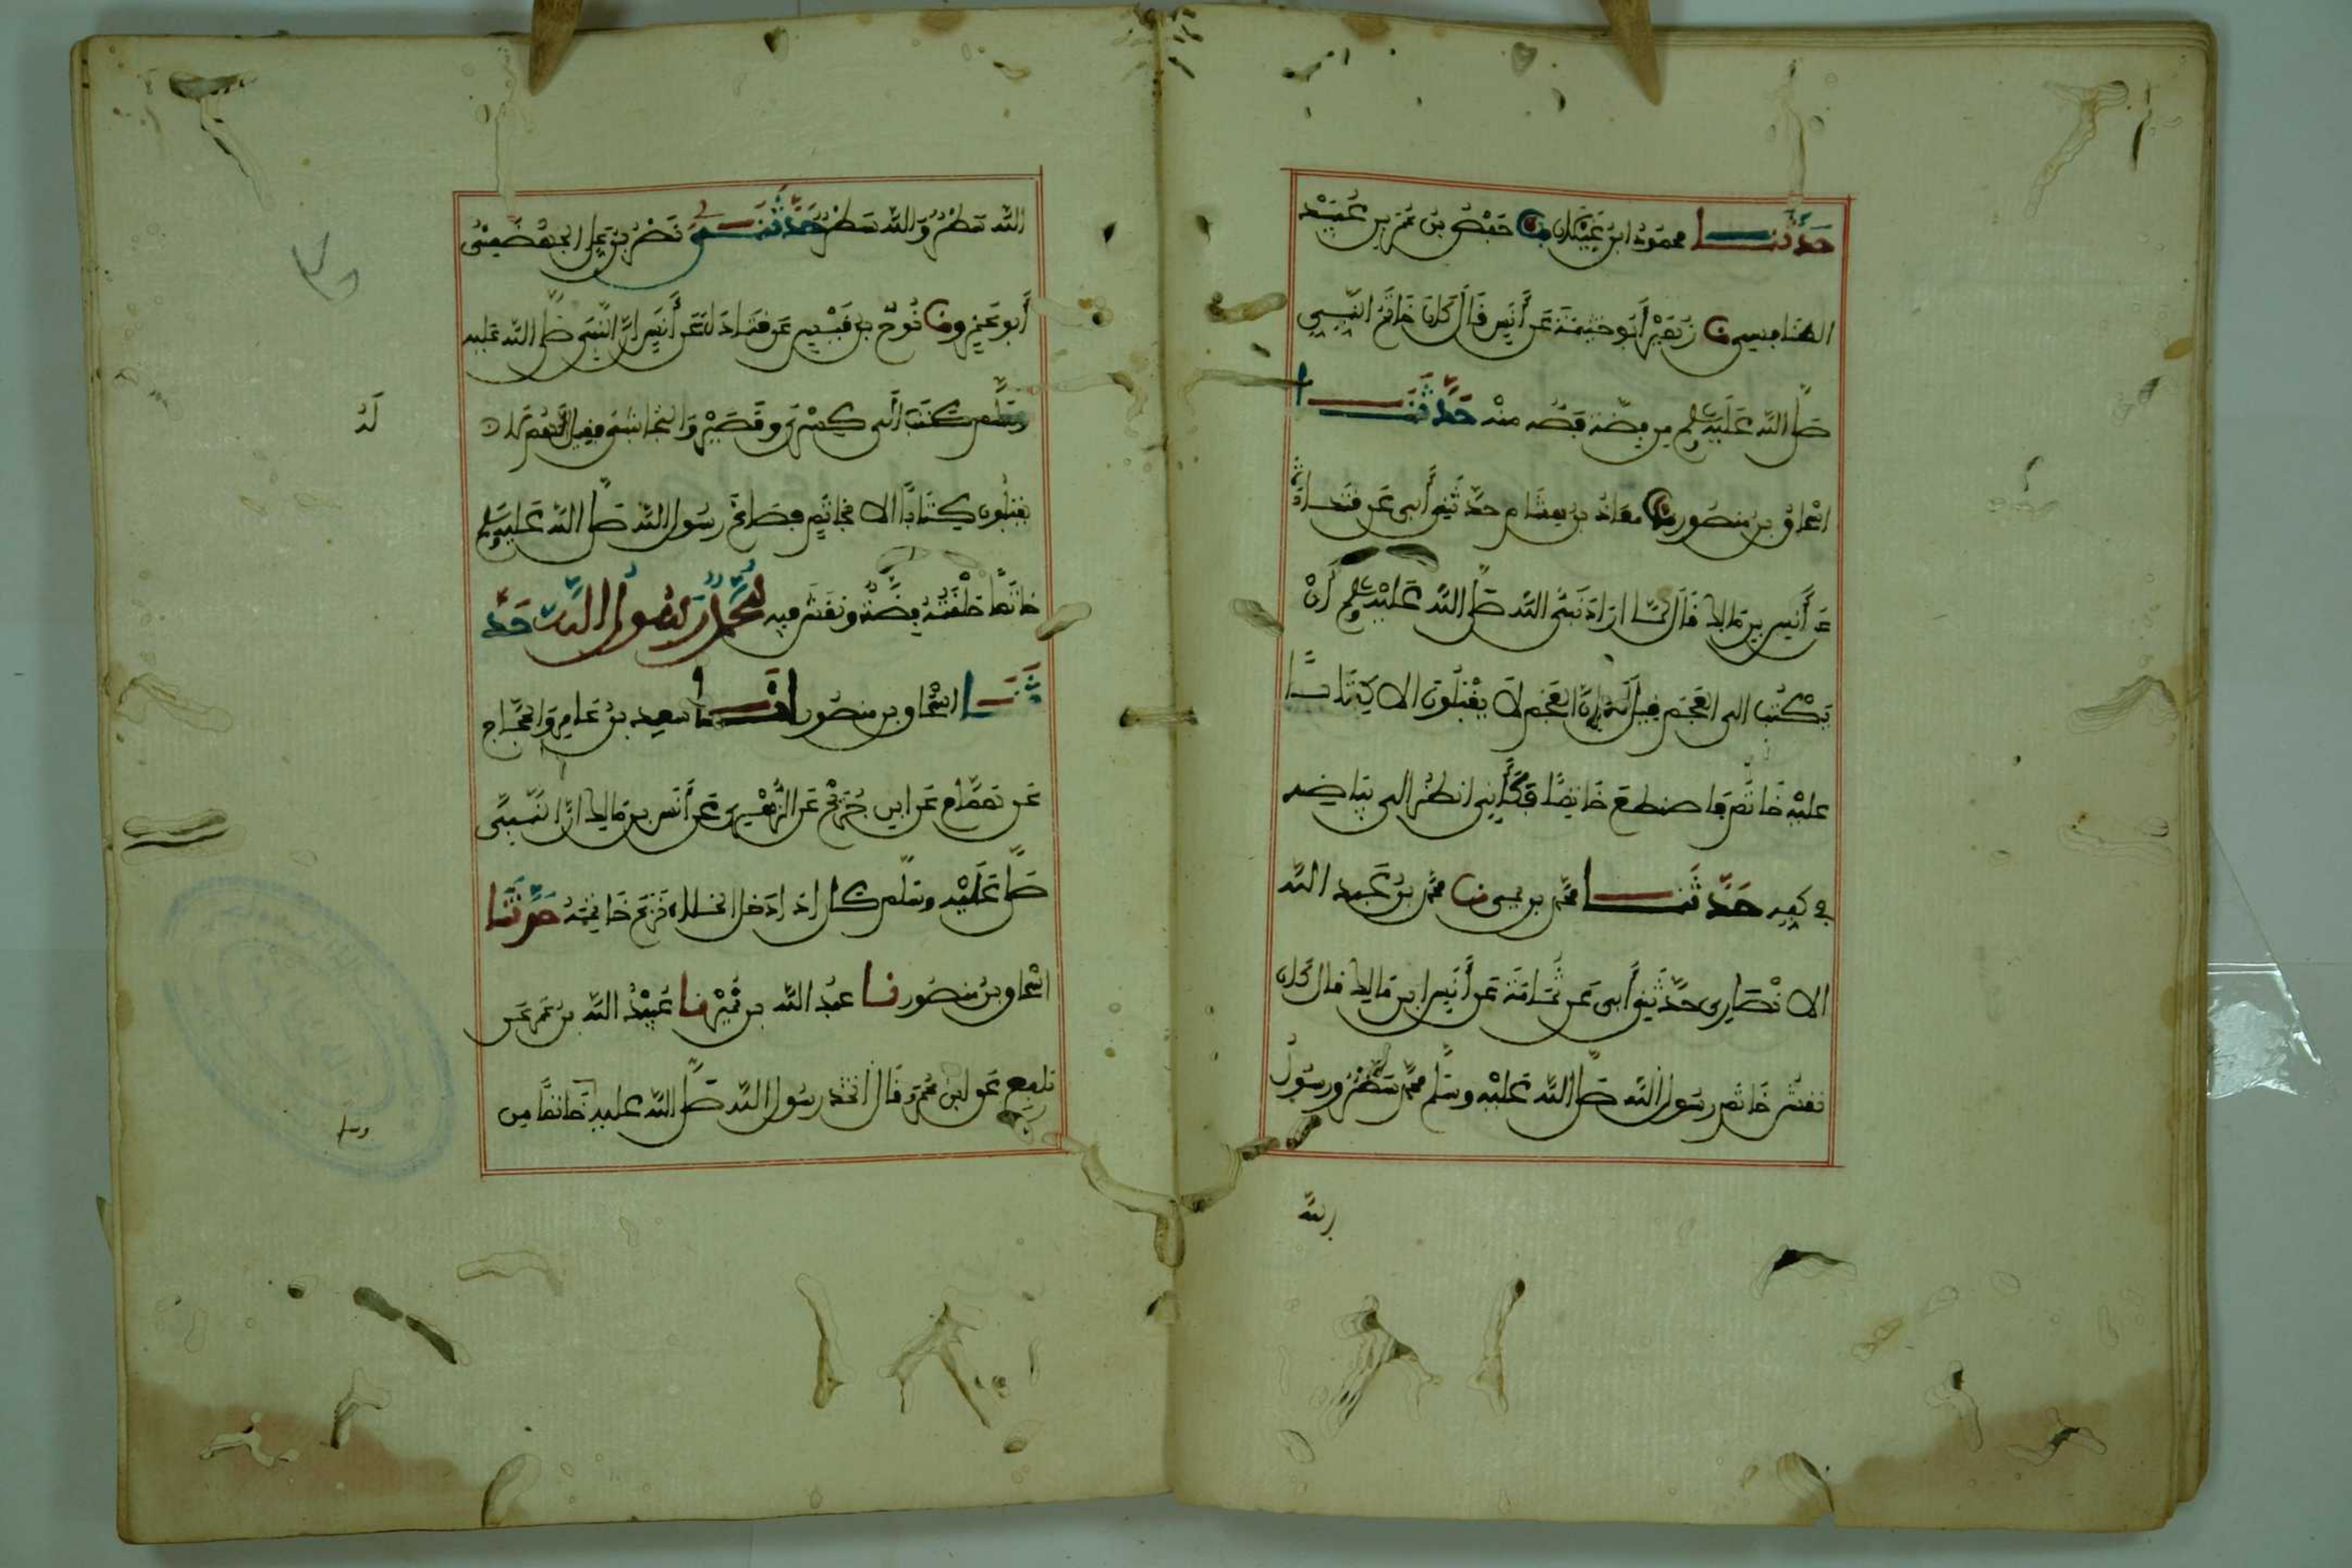 حَدَّثَنَا محمُود ابن غَيْلَان نا حَفْصُ بن عُمَر بن عُبَيْد
الطنَافِسِي نا زُهَيْر أَبُو خَيْثمَة عَن أَنَسٍ قَالَ كَانَ خَاتَم النَّبِيِي
صَلَّى اللَّه عَلَيْه وسلم مِن فِضَّة فَصُّه مِنْه حَدَّثَنَا
اسْحاقُ بن مَنصُور نا معَاذُ بن هشَام حَدَّثَنِي أَبِي عَن قتَادَة
عَن أَنَسِ بن مَالِك قَالَ لَمَّا ارَادَ نَبِيُّ اللَّه صَلَّى اللَّه عَلَيْه وسلم أَنْ
يَكْتُبَ الى العَجَم قِيلَ لَهُ إِنَّ العَجَم لَا يَقْبَلُونَ الا كِتَابًا
عليْه خَاتَم فَاصطنعَ خَاتَمًا فَكَأَنِّي انظُرُ الى بَيَاضِه
في كفِه حَدَّثَنَا محمَّد بن يحيى نا محمَّد بنُ عَبد اللَّه
الانْصَارِي حَدَّثَنِي أَبِي عَن ثُمَامَة عَن أَنَس ابن مَالِك قال كَانَ
نقشُ خَاتَم رَسُول اللَّه صَلَّى اللَّه عَلَيْه وسَلَّم محمَّد سَطْرٌ ورسُولُ
اللَّه سَطْرٌ وَاللَّه سَطْرٌ حَدَّثَنَا نَصْرُ بنُ عَلِي الجَهْضَمِيُّ
أَبُو عَمْرٍو نا نُوحُ بن قَيْسٍ عَن قتَادَةَ عَن أَنَسٍ انَّ النَّبِيَ صَلَّى اللَّه عَليه
وسَلَّم كَتَبَ الَى كِسْرَى وقَيْصَرَ وَالنجَاشِي فقِيل انَّهُم لَا
يقبَلُونَ كِتَابًا الا بخَاتَمٍ فصَاغَ رسُول اللَّه صَلَّى اللَّه عَليه وسلم
خاتَمًا حَلْقَتُهُ فِضَّةٌ ونَقَشَ فِيه مُحَمَّدٌ رَسُولُ اللَّه حَدَّ
ثَنَا اسْحَاق بن منصُور انا سعِيد بنُ عَامِر وَالحَجَّاج
عَن هَمَّام عَن ابن جُرَيْج عَن الزُّهْرِي عَن أَنَس بن مَالِك انَّ النَّبِيَّ
صَلَّى عَلَيْه وسَلَّم كان اذَا دَخَل الخَلاء نَزَعَ خَاتمَهُ حَدَّثَنَا
اسْحَاق بنُ مَنصُور نا عبدُ اللَّه بن نُمَيْر نا عُبَيْدُ اللَّه بن عُمَر عَن
نَافِع عَن ابن عُمَر قَالَ اتخَذ رسُول اللَّه صَلَّى اللَّه عليه خَاتمًا مِن
للَّه
لَهُ
وسلم